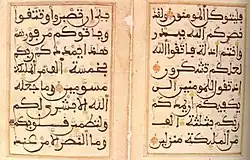 فليتوكل المومنون ولقد
نصركم الله ببدر
وانتم اذلة فاتقوا الله
لعلكم تشكرون
اذ تقول للمومنين الن
يكفيكم ان يمدكم
ربكم بثلثة الف
من المليكة منزلين
بلى ان تصبروا وتتقوا
وياتوكم من فورهم
هذا يمددكم ربكم
بخمسة الف من المليكة
مسومين وما جعله
الله الا بشرى لكم
ولتطمين قلوبكم به
وما النصر الا من عند